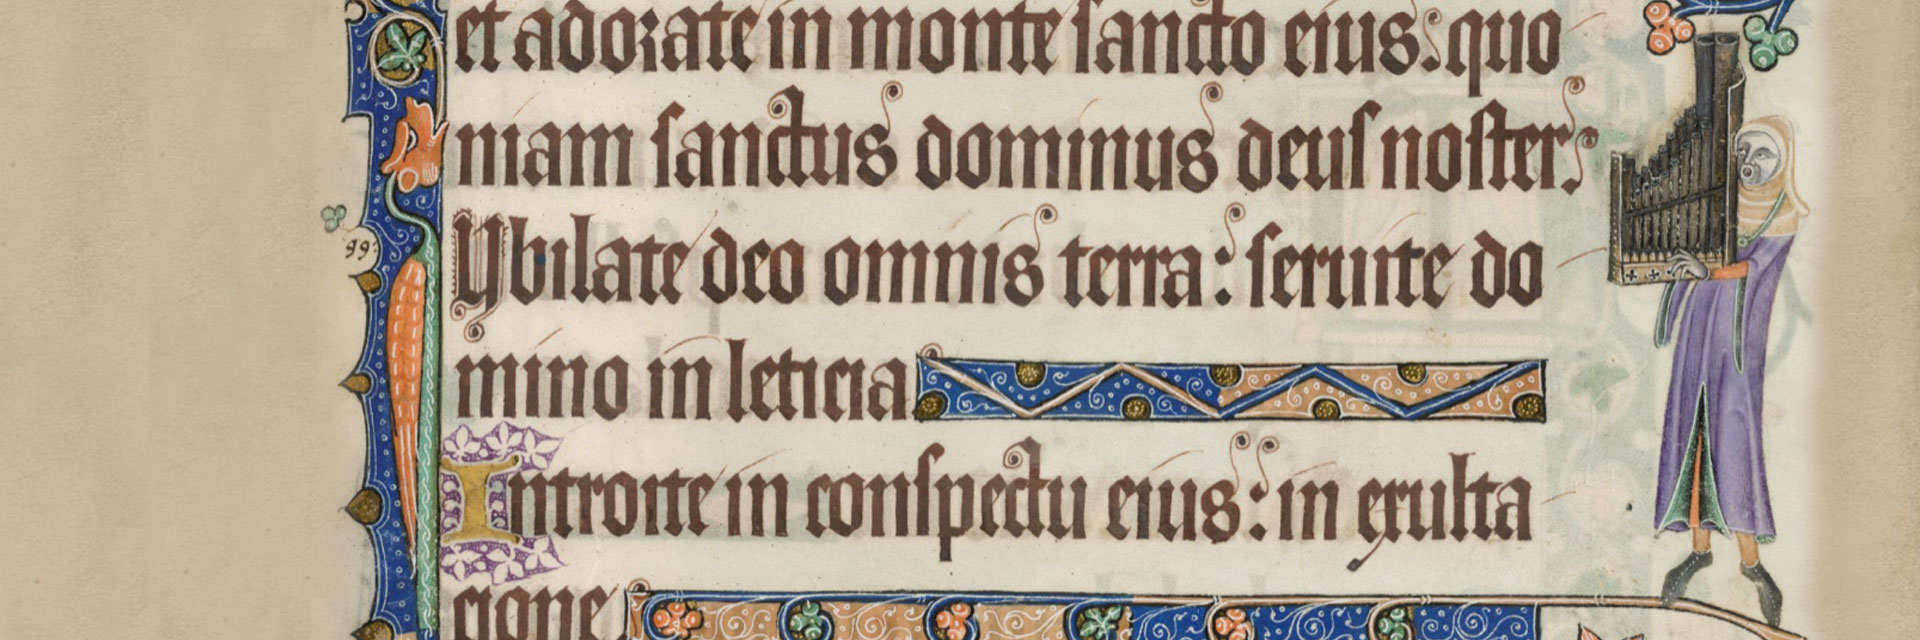 et adorate in monte sancto eius: quo
niam sanctus dominus deus noster:
99:
Iubilate deo omnis terra: seruite do
mino in leticia
Introite in conspectu eius: in exulta
cione